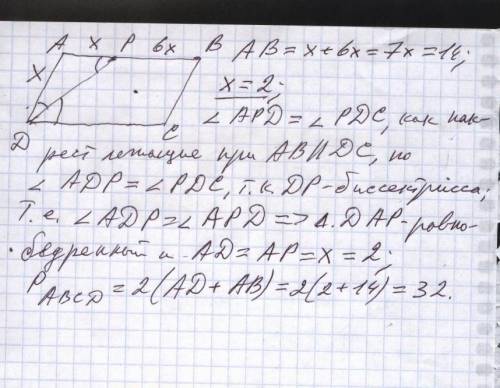 A x P 6x B AB = x + 6x = 7x = 14;
x x = 2;
∠APD = ∠PDC, как нак-
D C
рест лежащие при AB II DC, но
∠ADP = ∠PDC, т.к. DP - биссектрисса;
Т.е. ∠ADP = ∠APD => Δ. DAP - равно-
бедренный и AD = AP = x = 2;
P ABCD = 2(AD + AB) = 2(2 + 14) = 32.